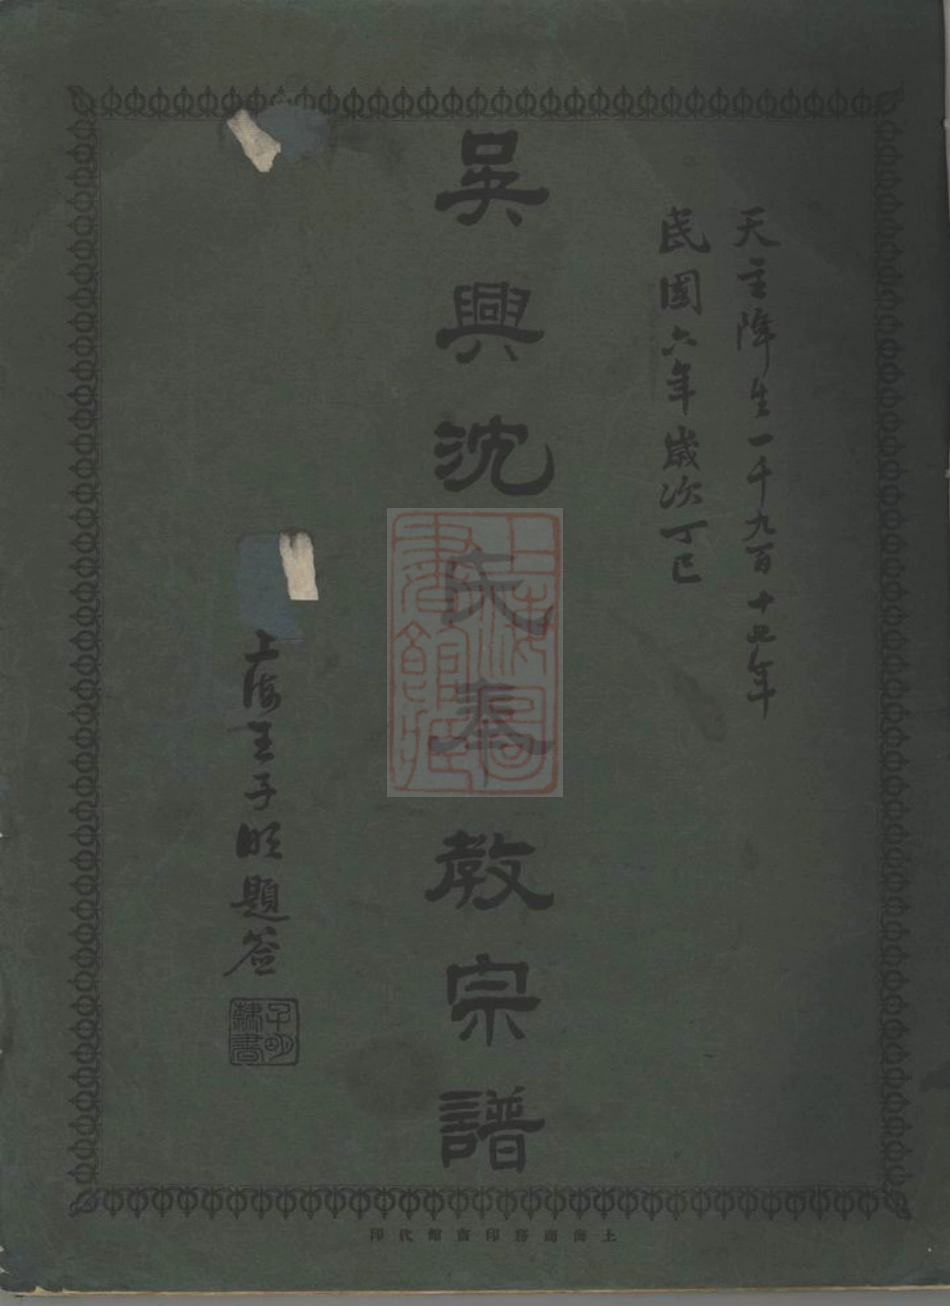 天主降生一千九百十七年
民國六年歲次丁巳
吳興沈氏奉教宗譜
上海圖書館藏
上海王子明題簽
子明隸書
上海商務印書館代印